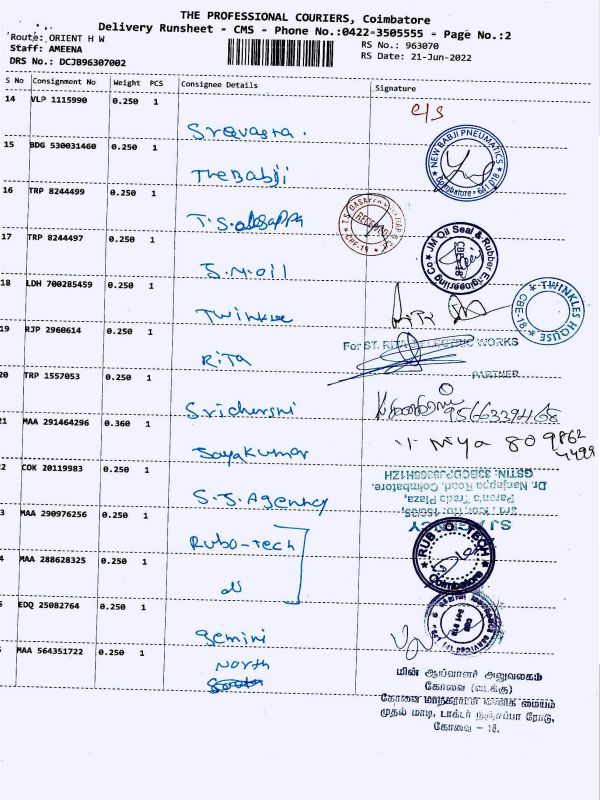 THE PROFESSIONAL COURIERS, Coimbatore
Delivery Runsheet - CMS - Phone No.:0422-3505555 - Page No.:2
Route: ORIENT H W
RS No.: 963070
Staff: AMEENA
RS Date: 21-Jun-2022
DRS No.: DCJB96307002
S No Consignment No Weight PCS Consignee Details Signature
14 VLP 1115990 0.250 1 c/s
Sreevasta.
15 BDG 530031460 0.250 1 NEW BABJI PNEUMATICS
Coimbatore - 641 018
The Babji
16 TRP 8244499 0.250 1
T.S. RECEIVED
17 TRP 8244497 0.250 1 JM Oil Seal & Rubber Engineering Co CBE-18
J.M.oil
18 LDH 700285459 0.250 1 TWINKLES HOUSE CBE-18
Twinkle
19 RJP 2960614 0.250 1
For ST. RITA ELECTRIC WORKS
RITA
PARTNER
20 TRP 1557053 0.250 1
Sricharsni
21 MAA 291464296 0.360 1
Jayakumar
2 COK 20119983 0.250 1 GSTIN: 33BCDPJ9366H1ZH
Dr. Nanjappa Road, Coimbatore.
S.J. Agency
3 MAA 290976256 0.250 1
Rubo-tech RUB O TECH
Coimbatore
4 MAA 288628325 0.250 1
EDQ 25082764 0.250 1
gemini
MAA 564351722 0.250 1 North
மின் ஆய்வாளர் அலுவலகம்
கோவை (வடக்கு)
கோவை மாநகராட்சி வணிக மையம்
முதல் மாடி, டாக்டர் நஞ்சப்பா ரோடு,
கோவை - 18.